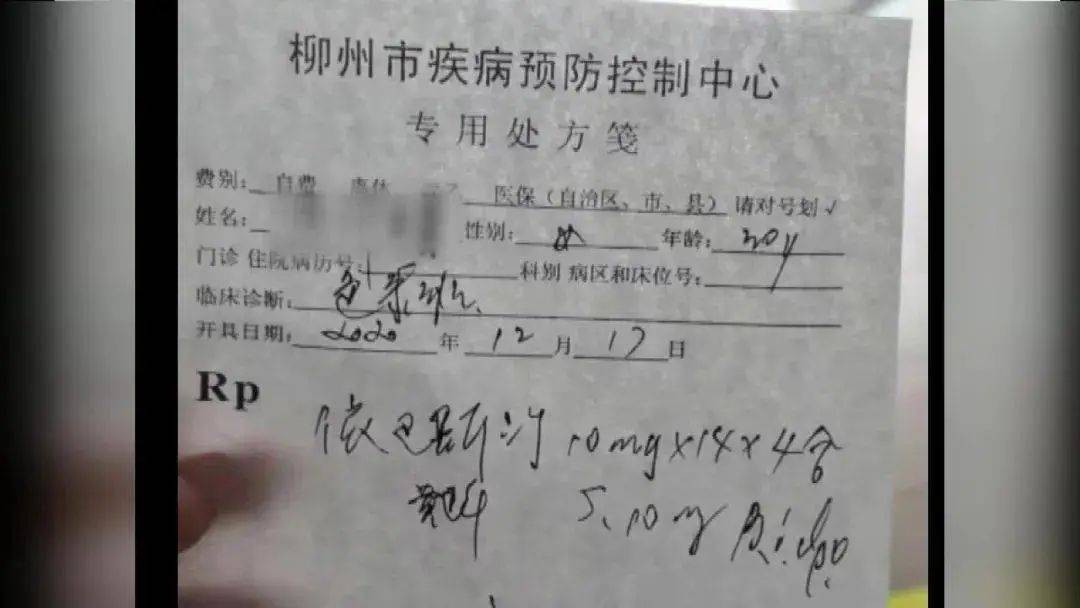 柳州市疾病预防控制中心
专用处方笺
费别: 自费 医保（自治区、市、县）请对号划√
姓名: 性别: 女 年龄: 30y
门诊 住院病历号: 科别 病区和床位号:
临床诊断:
开具日期: 2020 年 12 月 17 日
Rp
依巴斯汀 10mg×14×4盒
5.10mg